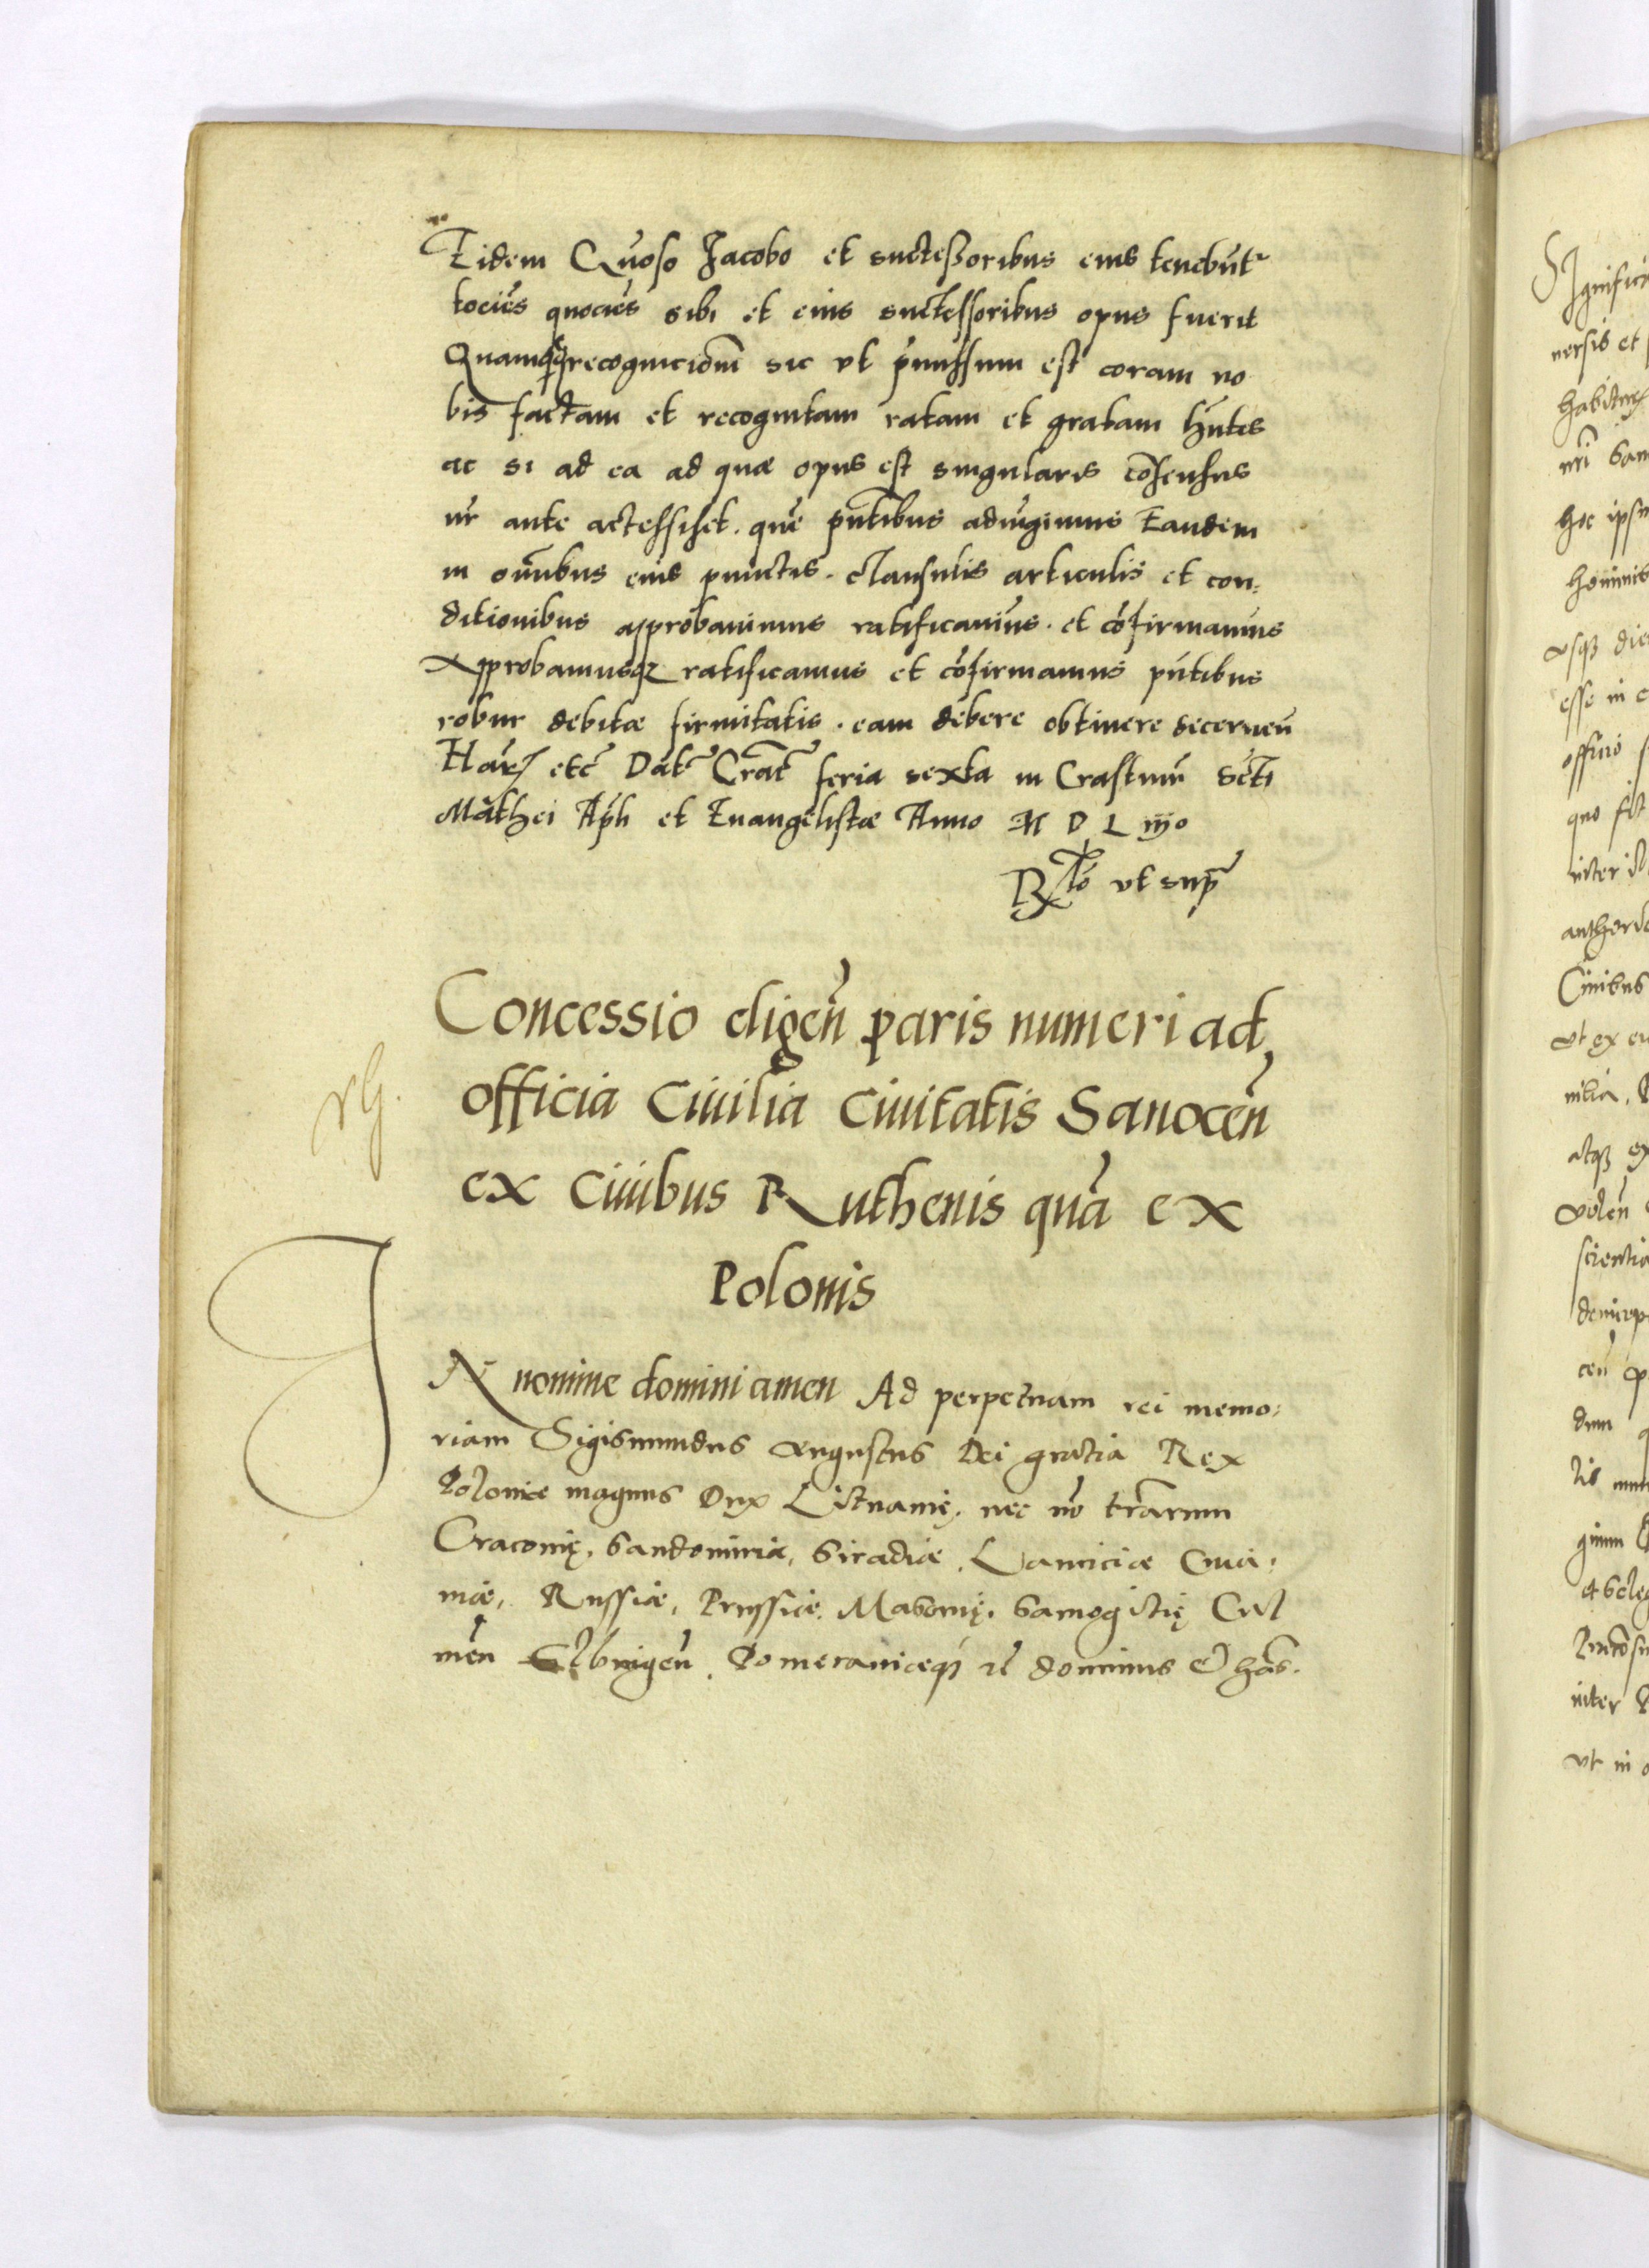 Eidem Gńoso Jacobo et successoribus eius tenebunt~
tociēs quociēs sibi et eius successoribus opus fuerit
Quamqꝫ recognicionē sic vt pmissum est coram no
bis factam et recognitam ratam et gratam hntes
ac si ad ea ad quæ opus est singularis cōsensus
nr ante accessisset. quē pntibus adiūgimus Eandem
in oībus eius punctis. clausulis articulis et con:
ditionibus approbauimus ratificauim̄us. et cōfirmauim̄us
Approbamusqꝫ ratificamus et cōfirmamus pntibus
robur debitæ firmitatis. eam debere obtinere decernen̄
Harꝫ etc̄ Dat Crac̄ feria sexta in Crastino Scti
Mathei Apli et Euangelistæ Anno M D L iijo
Rlo vt supr̄
Concessio eligen̄ paris numeri ad
officia Ciuilia Ciuitatis Sanocen̄
ex Ciuibus Ruthenis quā ex
Polonis
IN nomine domini amen Ad perpetuam rei memo:
riam Sigismundus Augustus Dei gratia Rex
Poloniæ magnus Dux Lithuanię, nec nō trarum
Cracouię, Sandomiriæ, Siradiæ, Lanciciæ Cuia:
uiæ, Russiæ, Prussiæ, Masouię, Samogitię Cul
men̄ Elbingen̄, Pomeraniæqꝫ rc̄ dominus Et hæs.